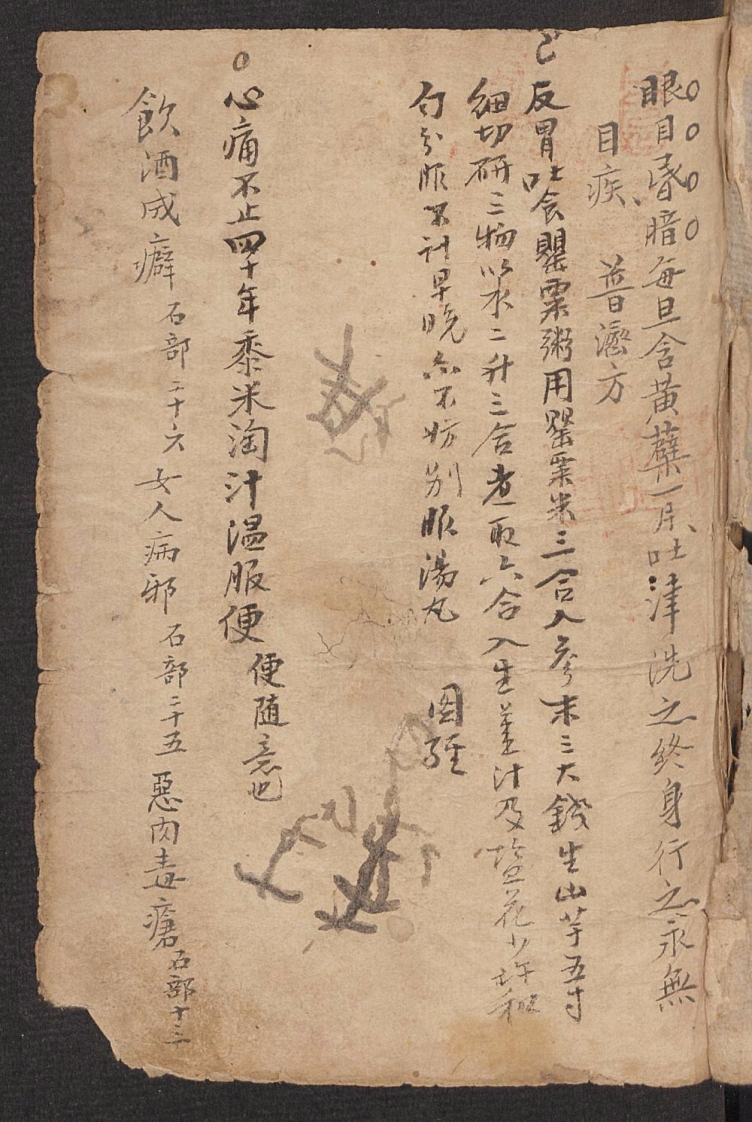 眼目昏暗每旦含黃蘗一片吐津洗之終身行之永無
目疾 普濟方
反胃吐食罌粟粥用罌粟米三合人參末三大錢生山芋五寸
細切研三物以水二升三合煮取六合入生薑汁及塩花少許和
勻分服不計早晚亦不妨別服湯丸 圖經
心痛不止四十年黍米淘汁温服便
便随意也
飮酒成癖 石部二十六 女人病邪 石部二十五 惡肉毒瘡 石部十三